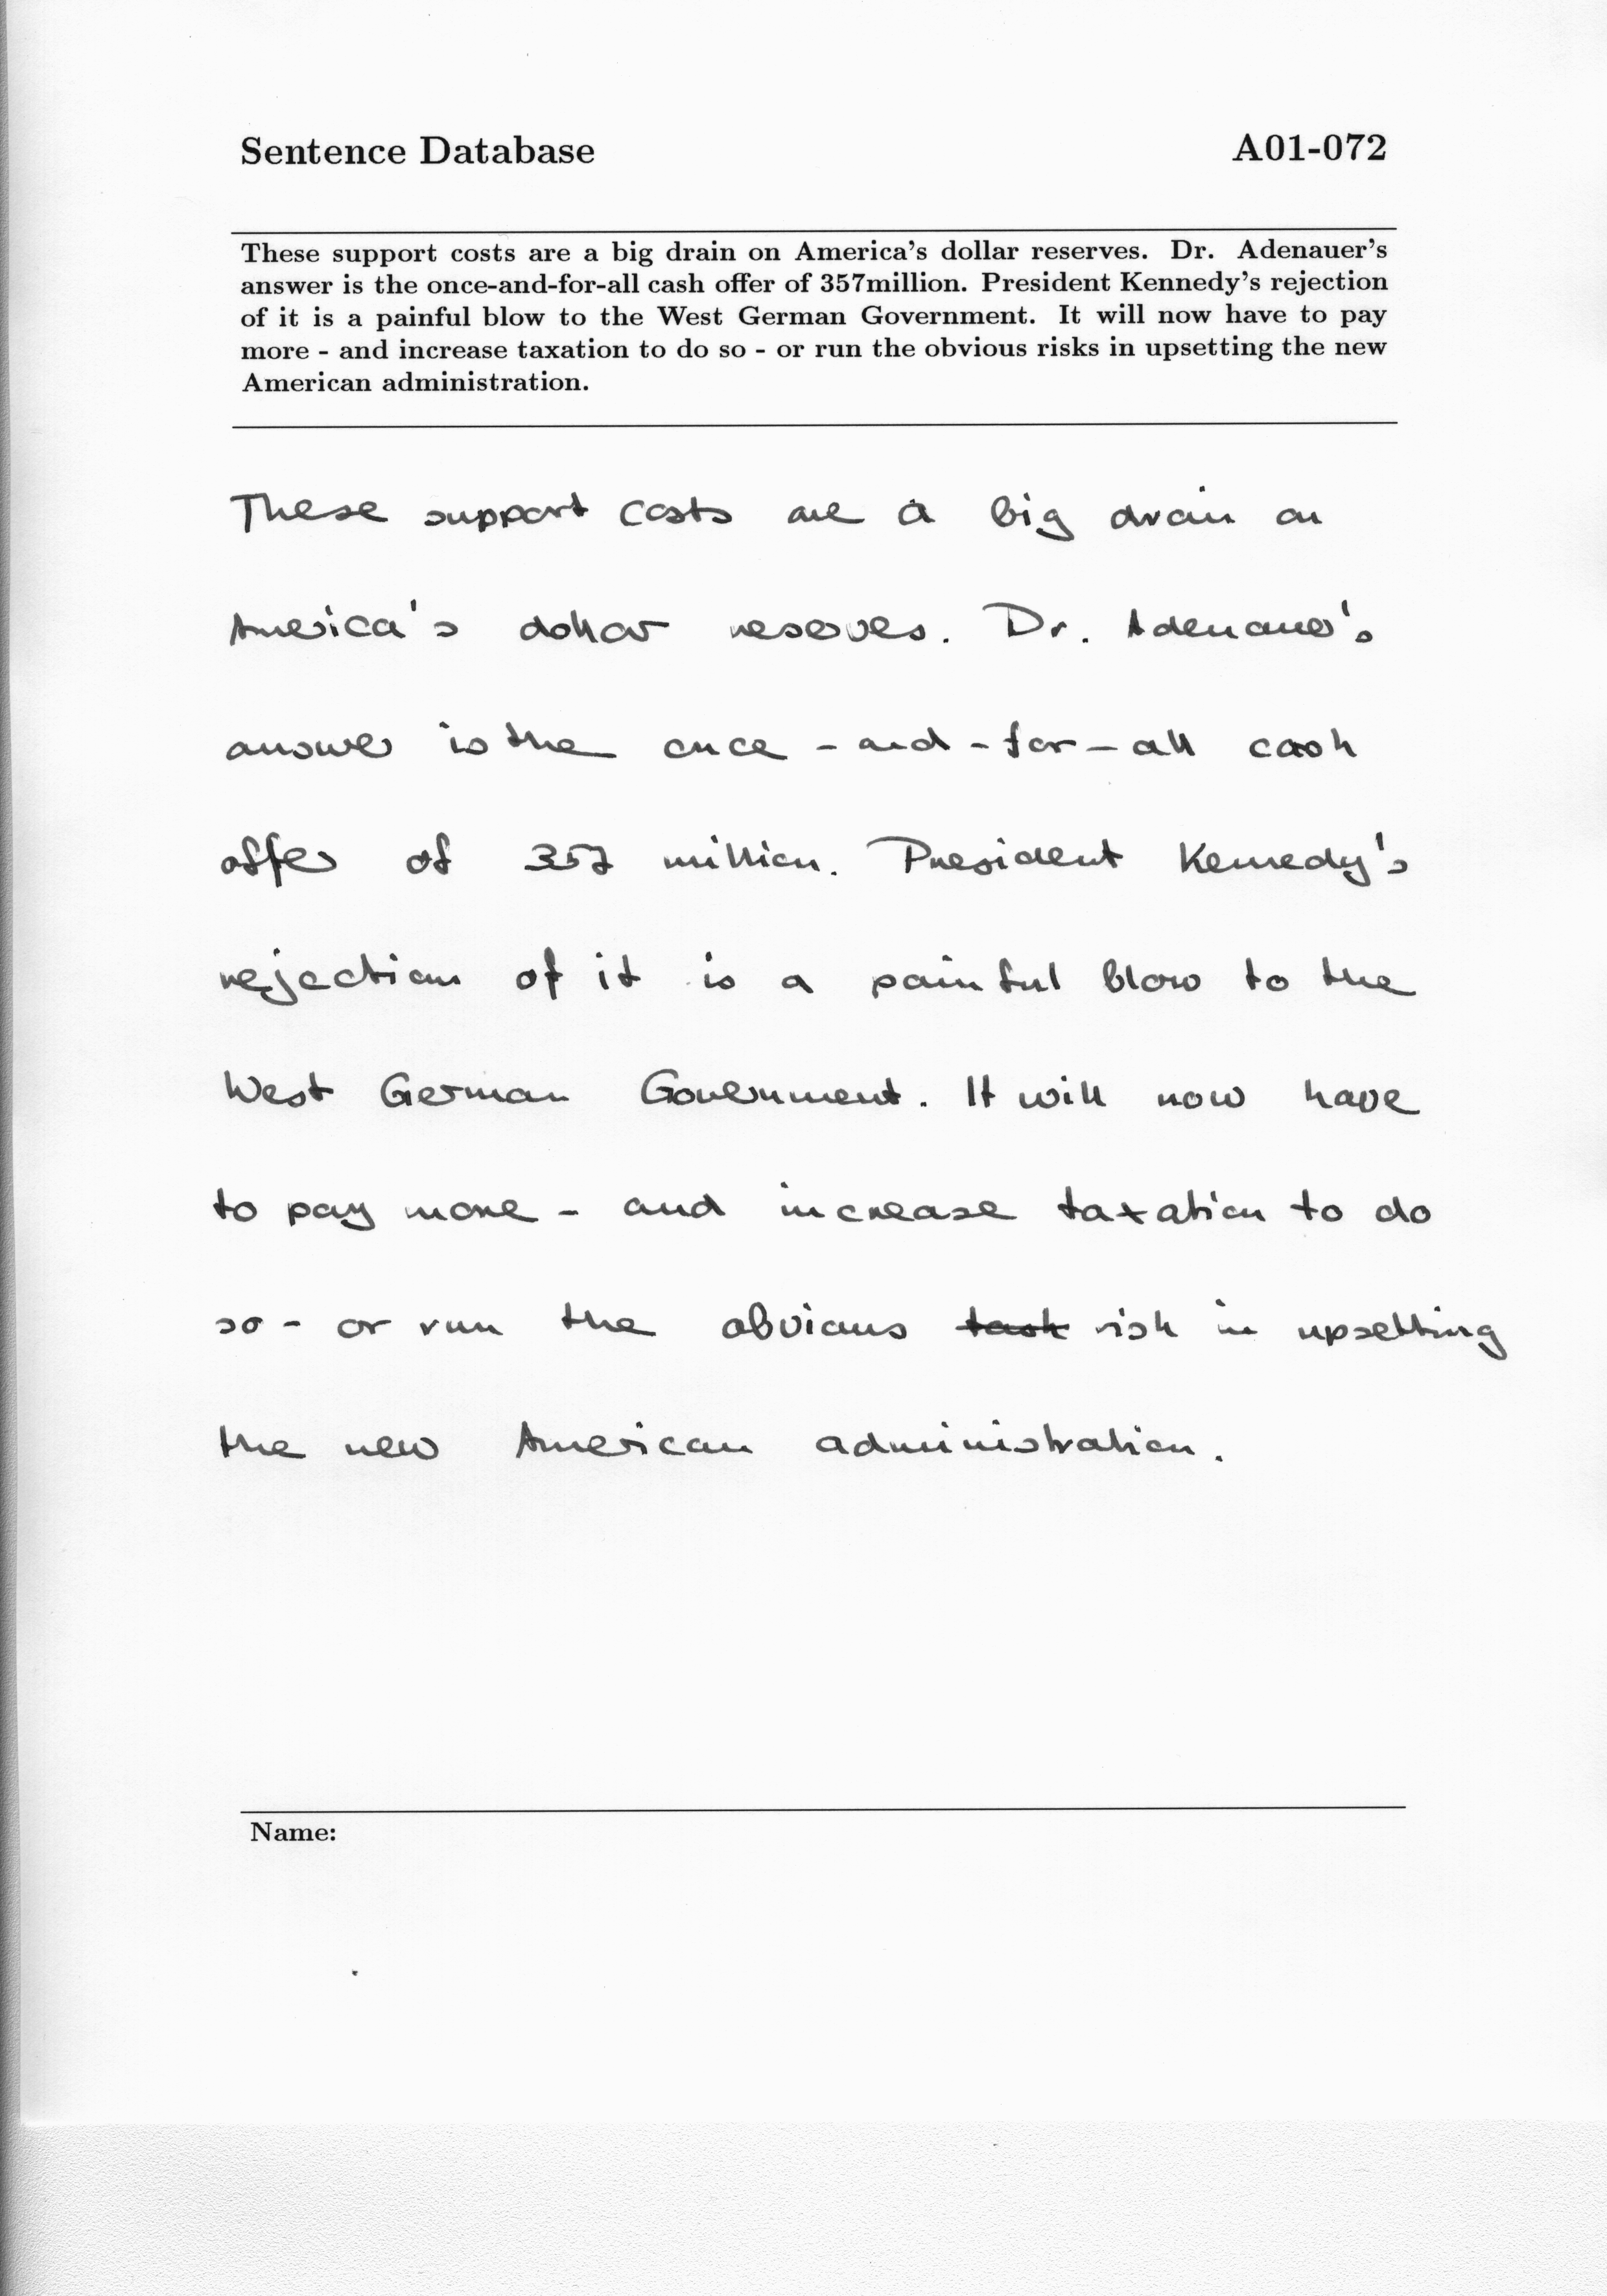 Sentence Database A01-072
These support costs are a big drain on America's dollar reserves. Dr. Adenauer's
answer is the once-and-for-all cash offer of 357million. President Kennedy's rejection
of it is a painful blow to the West German Government. It will now have to pay
more - and increase taxation to do so - or run the obvious risks in upsetting the new
American administration.
These support costs are a big drain on
America's dollar reserves. Dr. Adenauer's
answer is the once-and-for-all cash
offer of 357 million. President Kennedy's
rejection of it is a painful blow to the
West German Government. It will now have
to pay more - and increase taxation to do
so - or run the obvious task risk in upsetting
the new American administration.
Name: